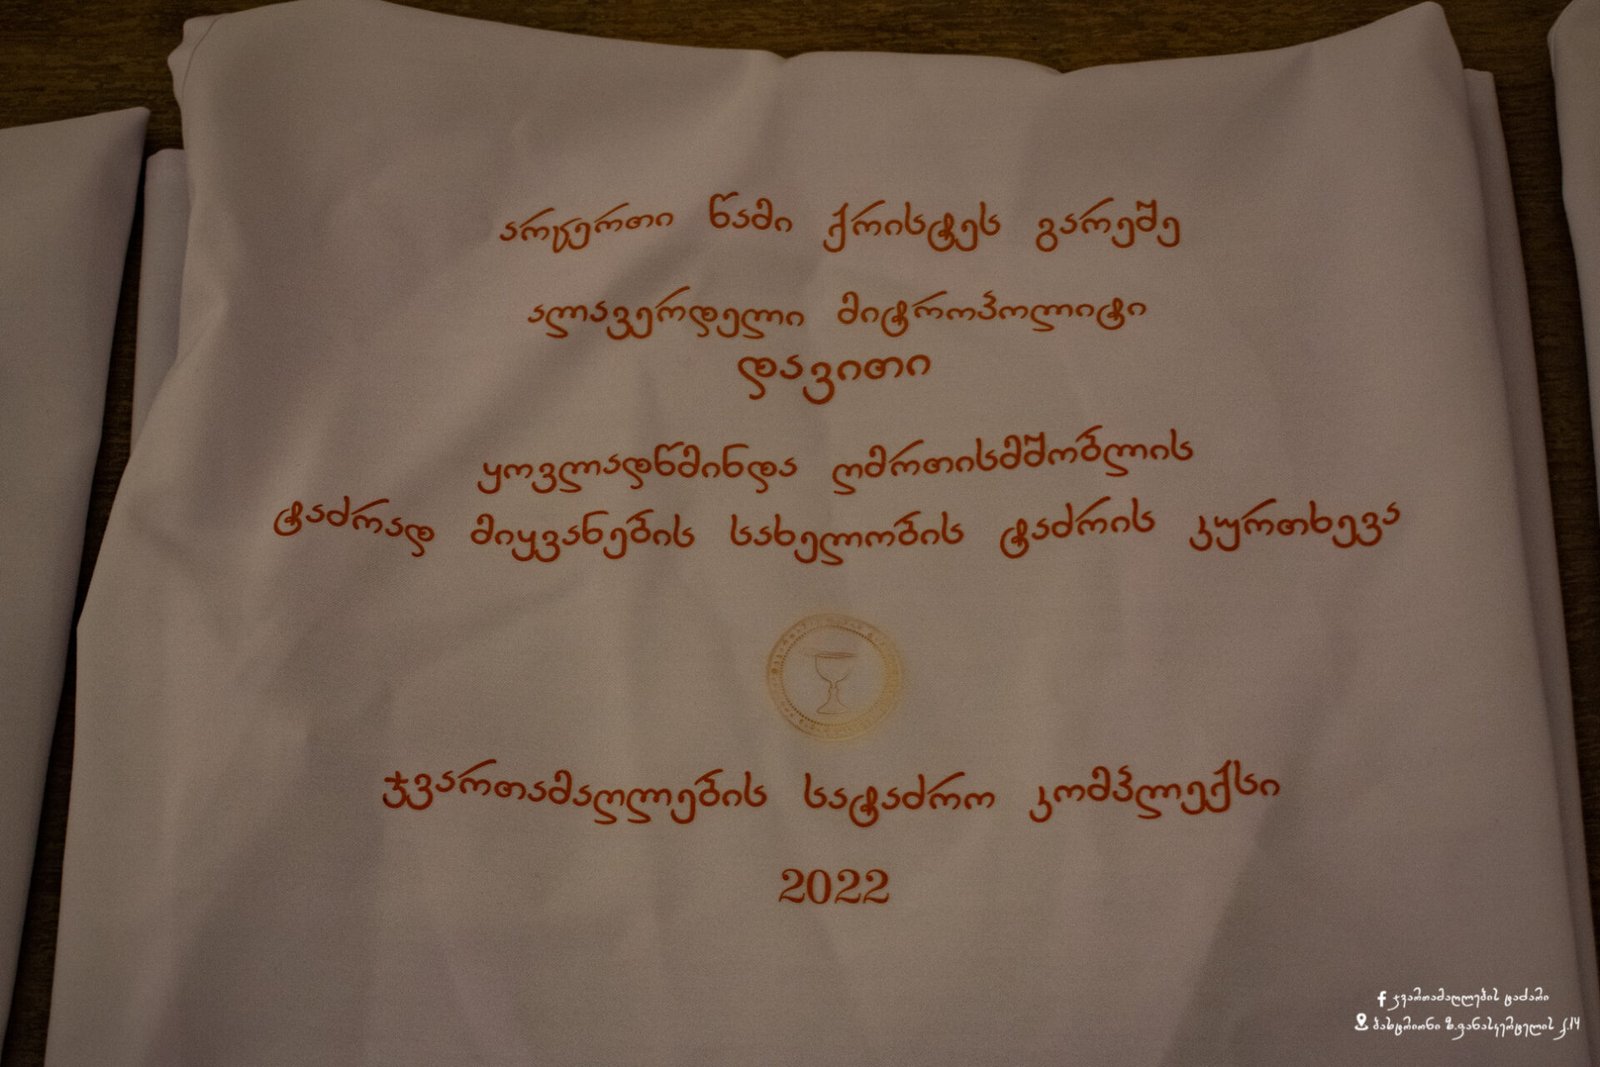 არცერთი წამი ქრისტეს გარეშე
ალავერდელი მიტროპოლიტი
დავითი
ყოვლადწმინდა ღმრთისმშობლის
ტაძრად მიყვანების სახელობის ტაძრის კურთხევა
ჯვართამაღლების სატაძრო კომპლექსი
2022
ჯვართამაღლების ტაძარი
ბახტრიონი ზ.ფანასკერტელის ქ.14